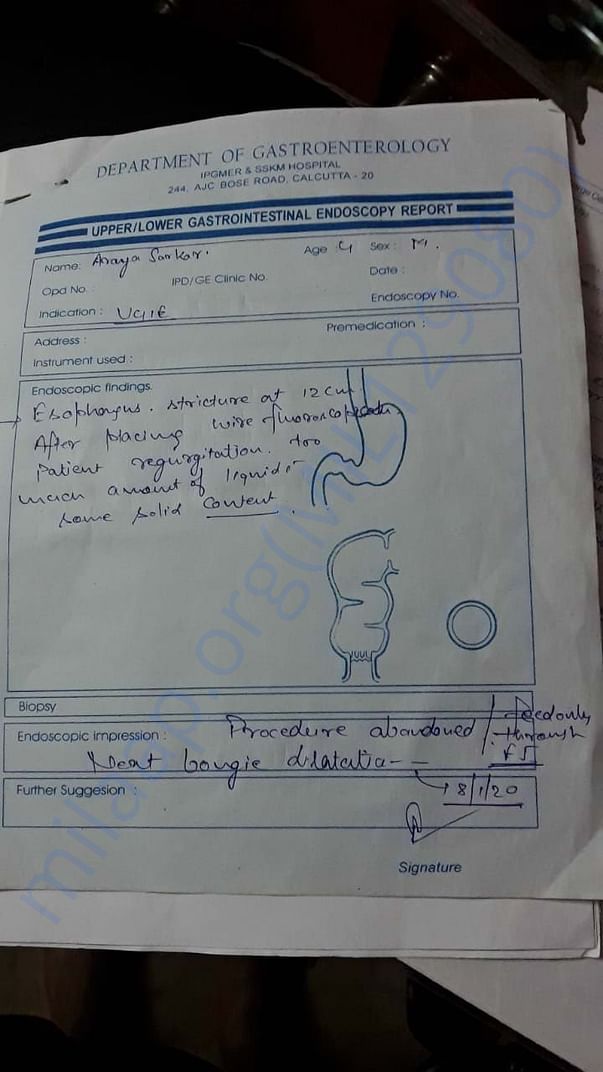 DEPARTMENT OF GASTROENTEROLOGY
IPGMER & SSKM HOSPITAL
244, AJC BOSE ROAD, CALCUTTA - 20
UPPER/LOWER GASTROINTESTINAL ENDOSCOPY REPORT
Name: Araya Sarkar. Age : 4 Sex : M.
Opd No. : IPD/GE Clinic No. Date :
Indication : UGIE Endoscopy No.
Address : Premedication :
Instrument used :
Endoscopic findings.
Esophagus. stricture at 12 cm
After placing wire
Patient regurgitation. too
much amount of liquid
some solid content.
Biopsy
Endoscopic impression : Procedure abandoned / Feed only
through
Next bougie dilatation
Further Suggesion : 8/1/20
Signature
milaap.org